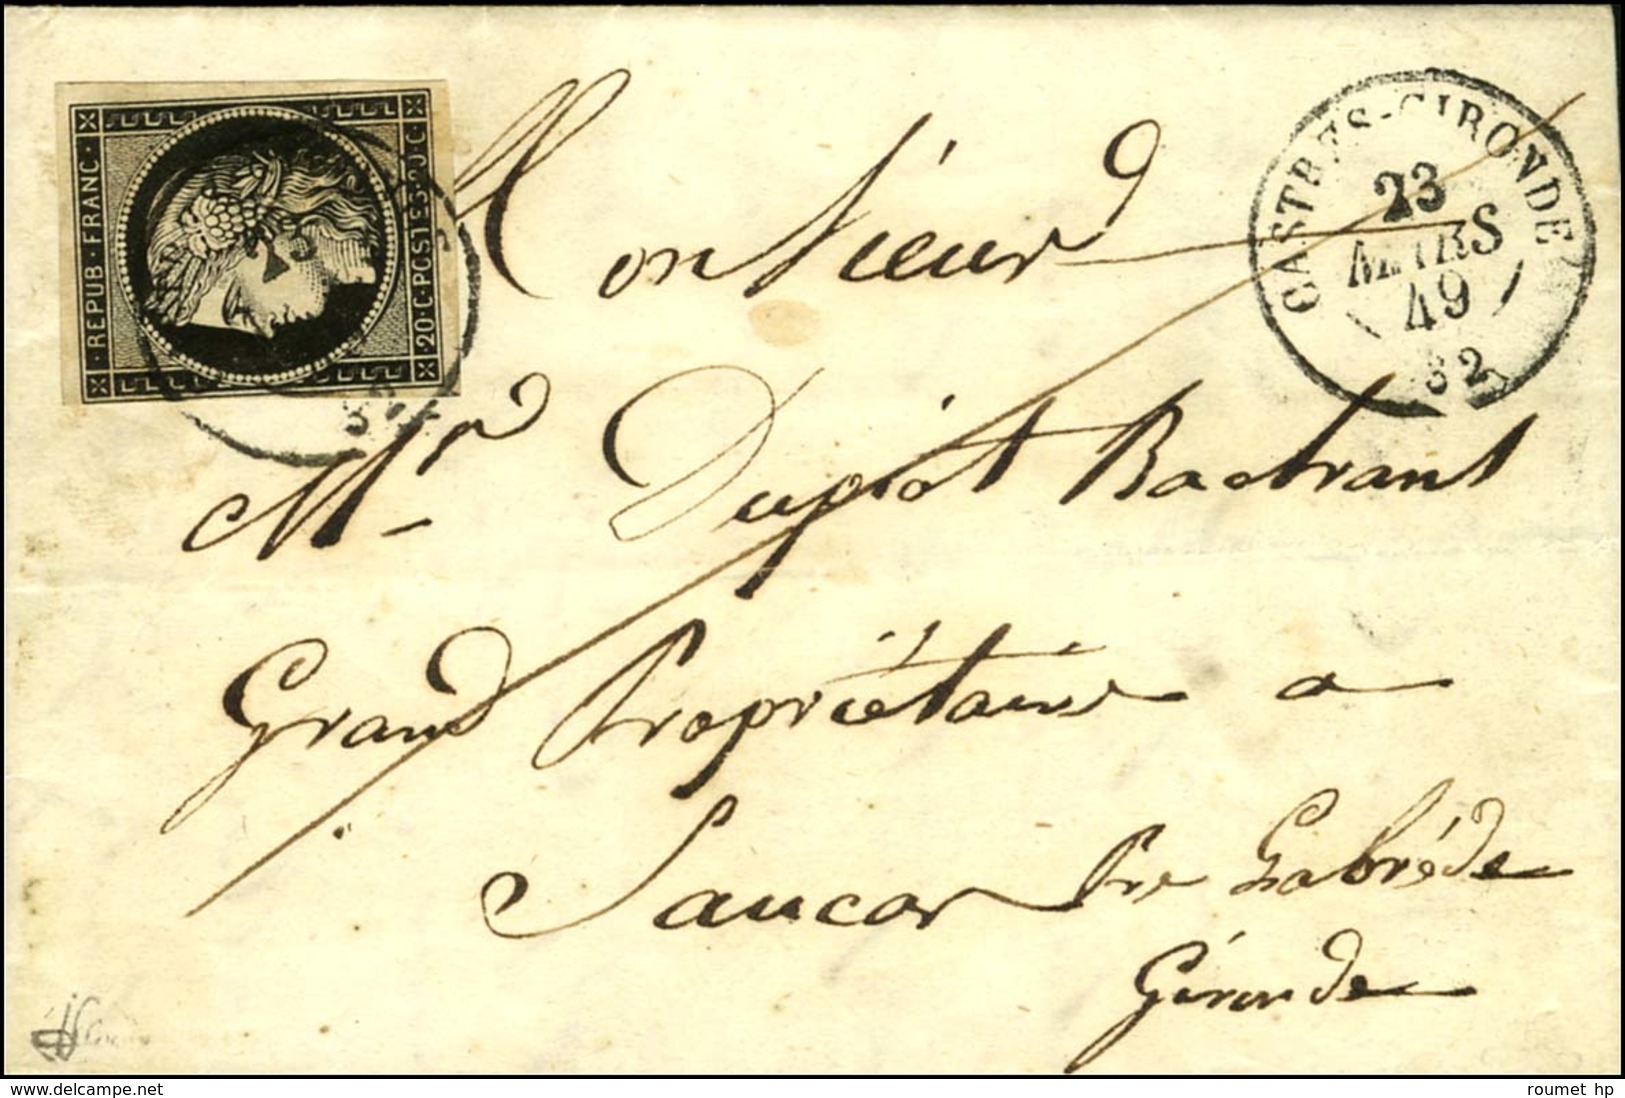 REPUB. FRANC.
20.C.POSTES.20.C
23
32
CASTRES-GIRONDE
23
MARS
49
32
Monsieur
Mr Dupiot Bastrant
Grand Propriétaire a
Saucas Pre Labréde
Gironde
roumet hp